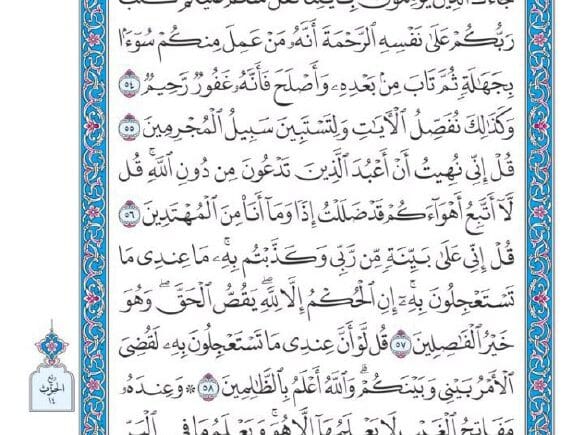 جَآءَكَ ٱلَّذِينَ يُؤْمِنُونَ بِـَٔايَـٰتِنَا فَقُلْ سَلَـٰمٌ عَلَيْكُمْ ۖ كَتَبَ
رَبُّكُمْ عَلَىٰ نَفْسِهِ ٱلرَّحْمَةَ ۖ أَنَّهُۥ مَنْ عَمِلَ مِنكُمْ سُوٓءًۢا
بِجَهَـٰلَةٍ ثُمَّ تَابَ مِنۢ بَعْدِهِۦ وَأَصْلَحَ فَأَنَّهُۥ غَفُورٌ رَّحِيمٌ ٥٤
وَكَذَٰلِكَ نُفَصِّلُ ٱلْـَٔايَـٰتِ وَلِتَسْتَبِينَ سَبِيلُ ٱلْمُجْرِمِينَ ٥٥
قُلْ إِنِّى نُهِيتُ أَنْ أَعْبُدَ ٱلَّذِينَ تَدْعُونَ مِن دُونِ ٱللَّهِ ۚ قُل
لَّآ أَتَّبِعُ أَهْوَآءَكُمْ ۙ قَدْ ضَلَلْتُ إِذًا وَمَآ أَنَا۠ مِنَ ٱلْمُهْتَدِينَ ٥٦
قُلْ إِنِّى عَلَىٰ بَيِّنَةٍ مِّن رَّبِّى وَكَذَّبْتُم بِهِۦ ۚ مَا عِندِى مَا
تَسْتَعْجِلُونَ بِهِۦٓ ۚ إِنِ ٱلْحُكْمُ إِلَّا لِلَّهِ ۖ يَقُصُّ ٱلْحَقَّ ۖ وَهُوَ
خَيْرُ ٱلْفَـٰصِلِينَ ٥٧ قُل لَّوْ أَنَّ عِندِى مَا تَسْتَعْجِلُونَ بِهِۦ لَقُضِىَ
ٱلْأَمْرُ بَيْنِى وَبَيْنَكُمْ ۗ وَٱللَّهُ أَعْلَمُ بِٱلظَّـٰلِمِينَ ٥٨ ۞ وَعِندَهُۥ
مَفَاتِحُ ٱلْغَيْبِ لَا يَعْلَمُهَآ إِلَّا هُوَ ۚ وَيَعْلَمُ مَا فِى ٱلْبَرِّ
ربع
الحزب
١٤